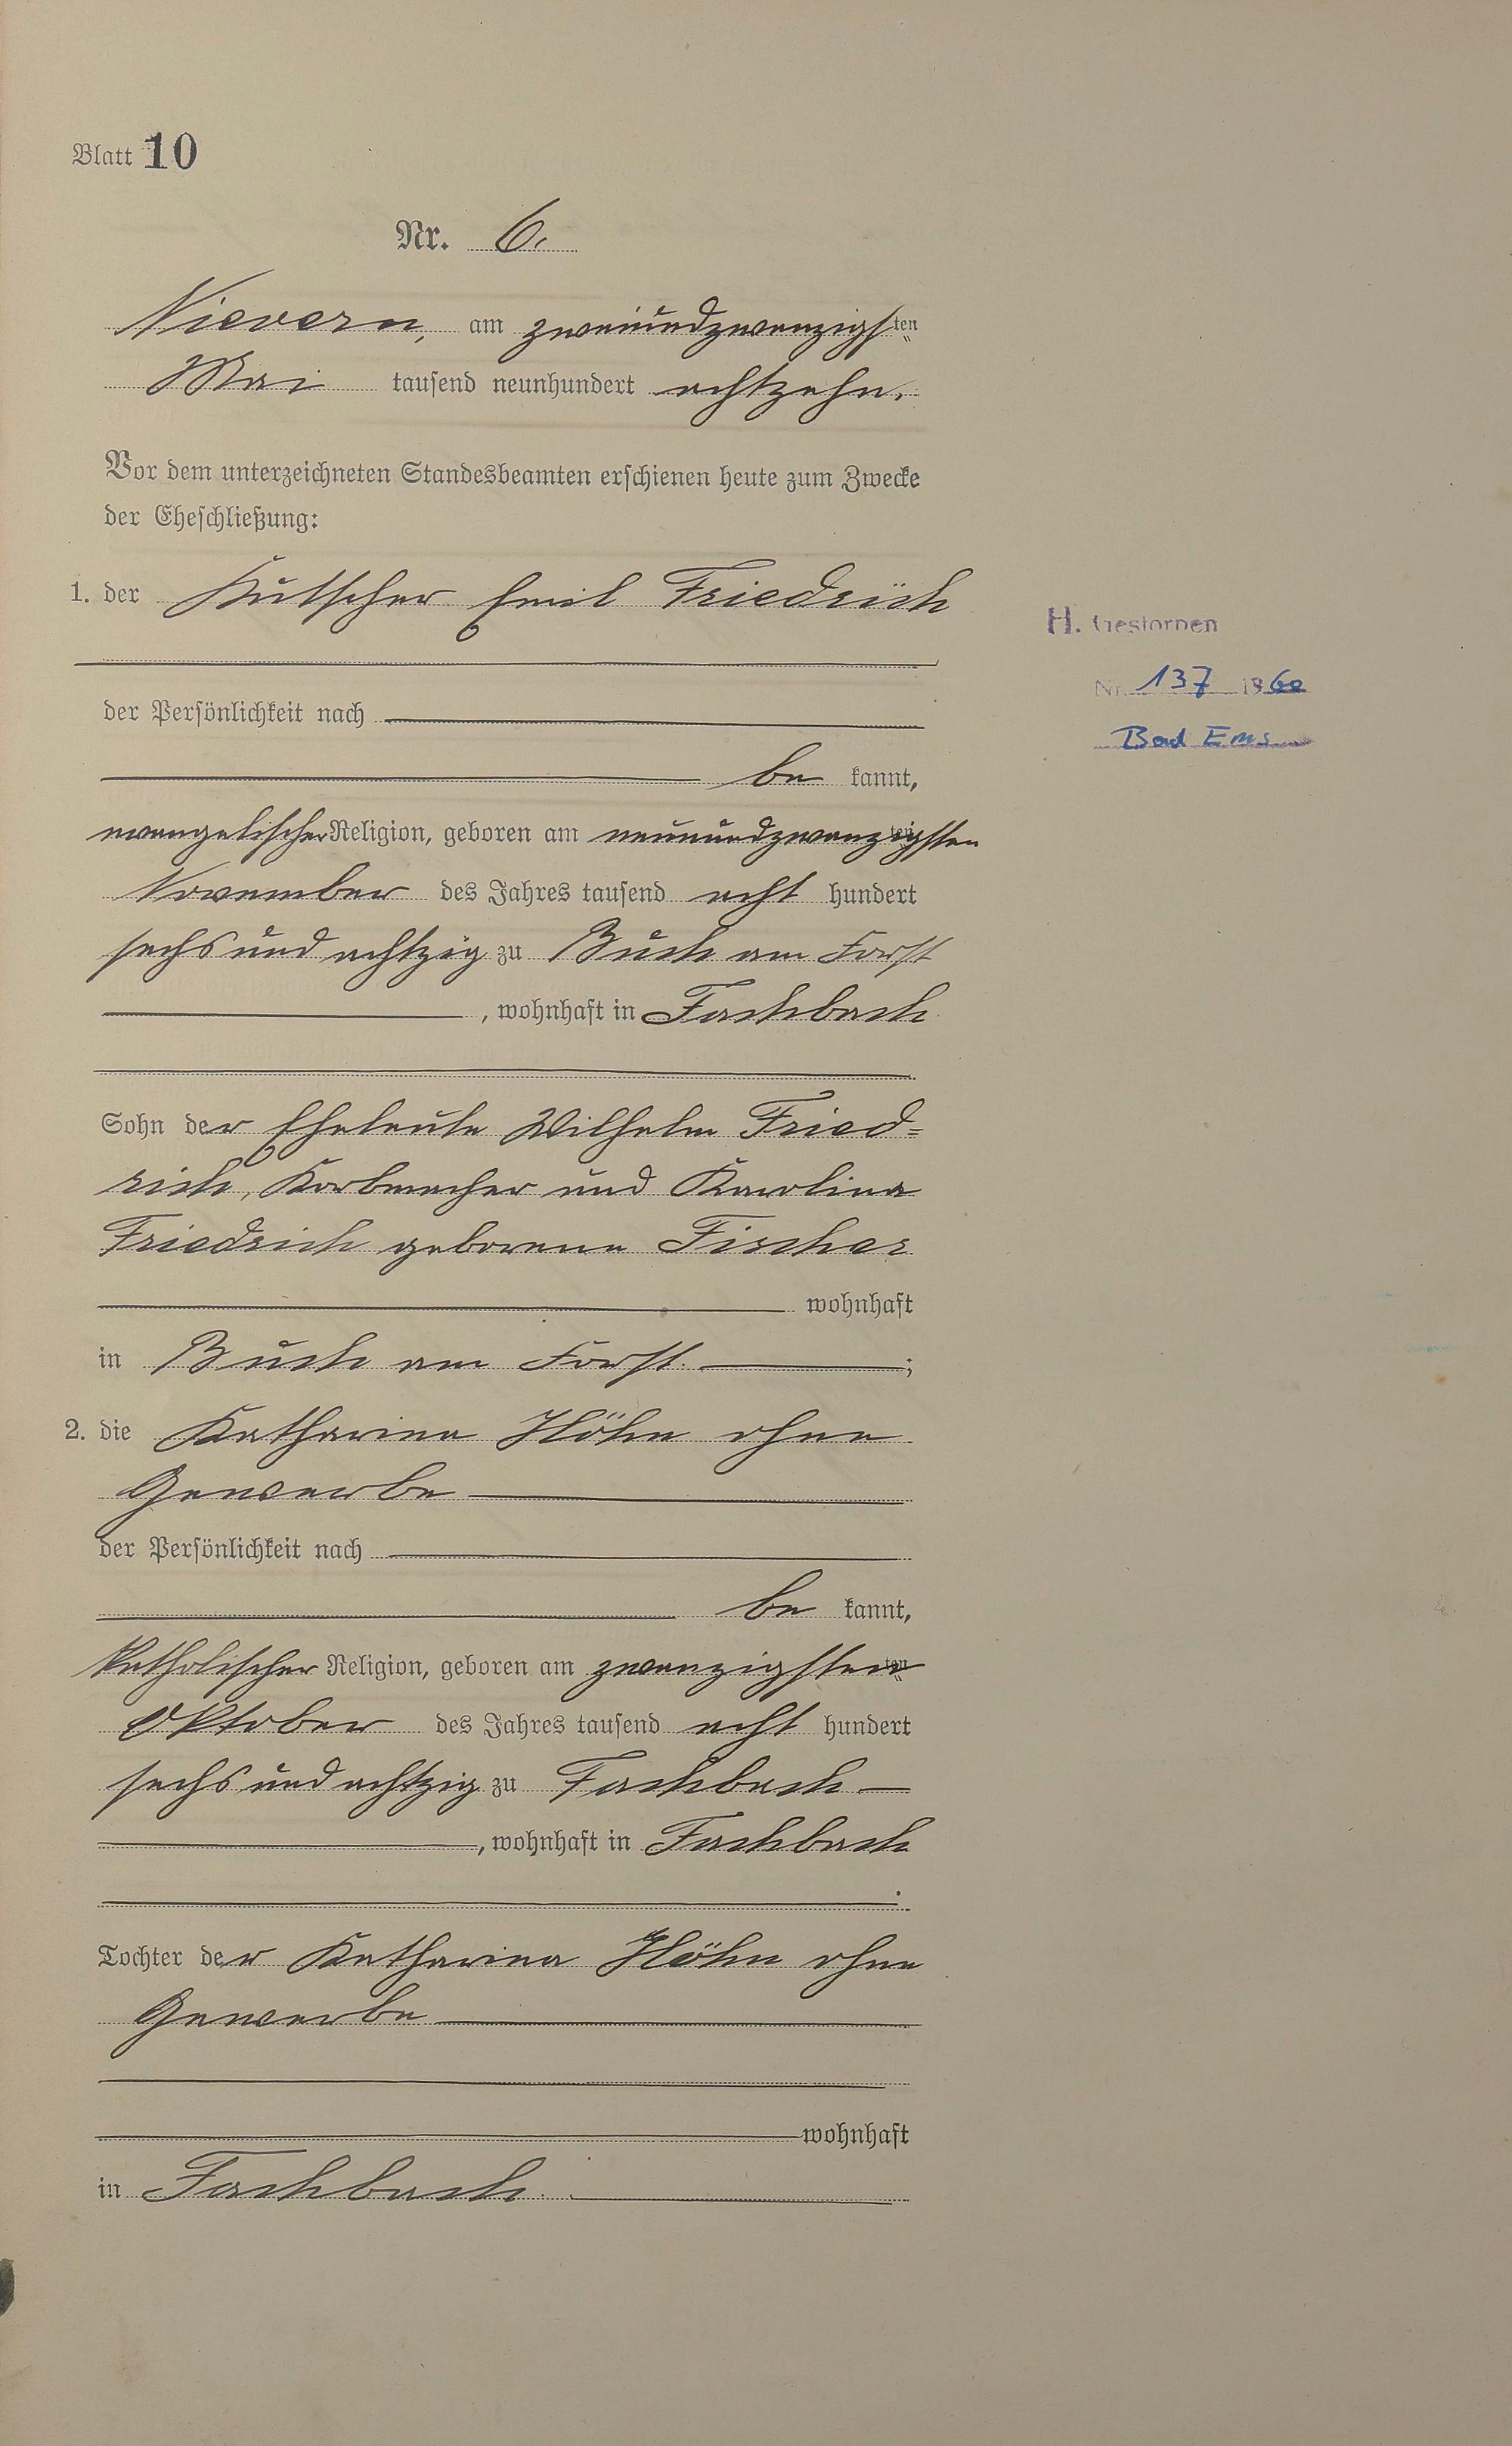 Blatt 10
Nr. 6.
Nievern, am zweiundzwanzigsten
Mai tausend neunhundert achtzehn.
Vor dem unterzeichneten Standesbeamten erschienen heute zum Zwecke
der Eheschließung:
1. der Kutscher Emil Friedrich
der Persönlichkeit nach
be kannt,
evangelischer Religion, geboren am neunundzwanzigsten
November des Jahres tausend acht hundert
sechs und achtzig zu Buch am Forst
, wohnhaft in Fachbach
Sohn der Eheleute Wilhelm Fried=
rich, Korbmacher und Karolina
Friedrich geborene Fischer
wohnhaft
in Buch am Forst ;
2. die Katharina Höhn ohne
Gewerbe
der Persönlichkeit nach
be kannt,
katholischer Religion, geboren am zwanzigsten
Oktober des Jahres tausend acht hundert
sechs und achtzig zu Fachbach
, wohnhaft in Fachbach
Tochter der Katharina Höhn ohne
Gewerbe
wohnhaft
in Fachbach.
H. Gestorben
Nr. 137 1960
Bad Ems